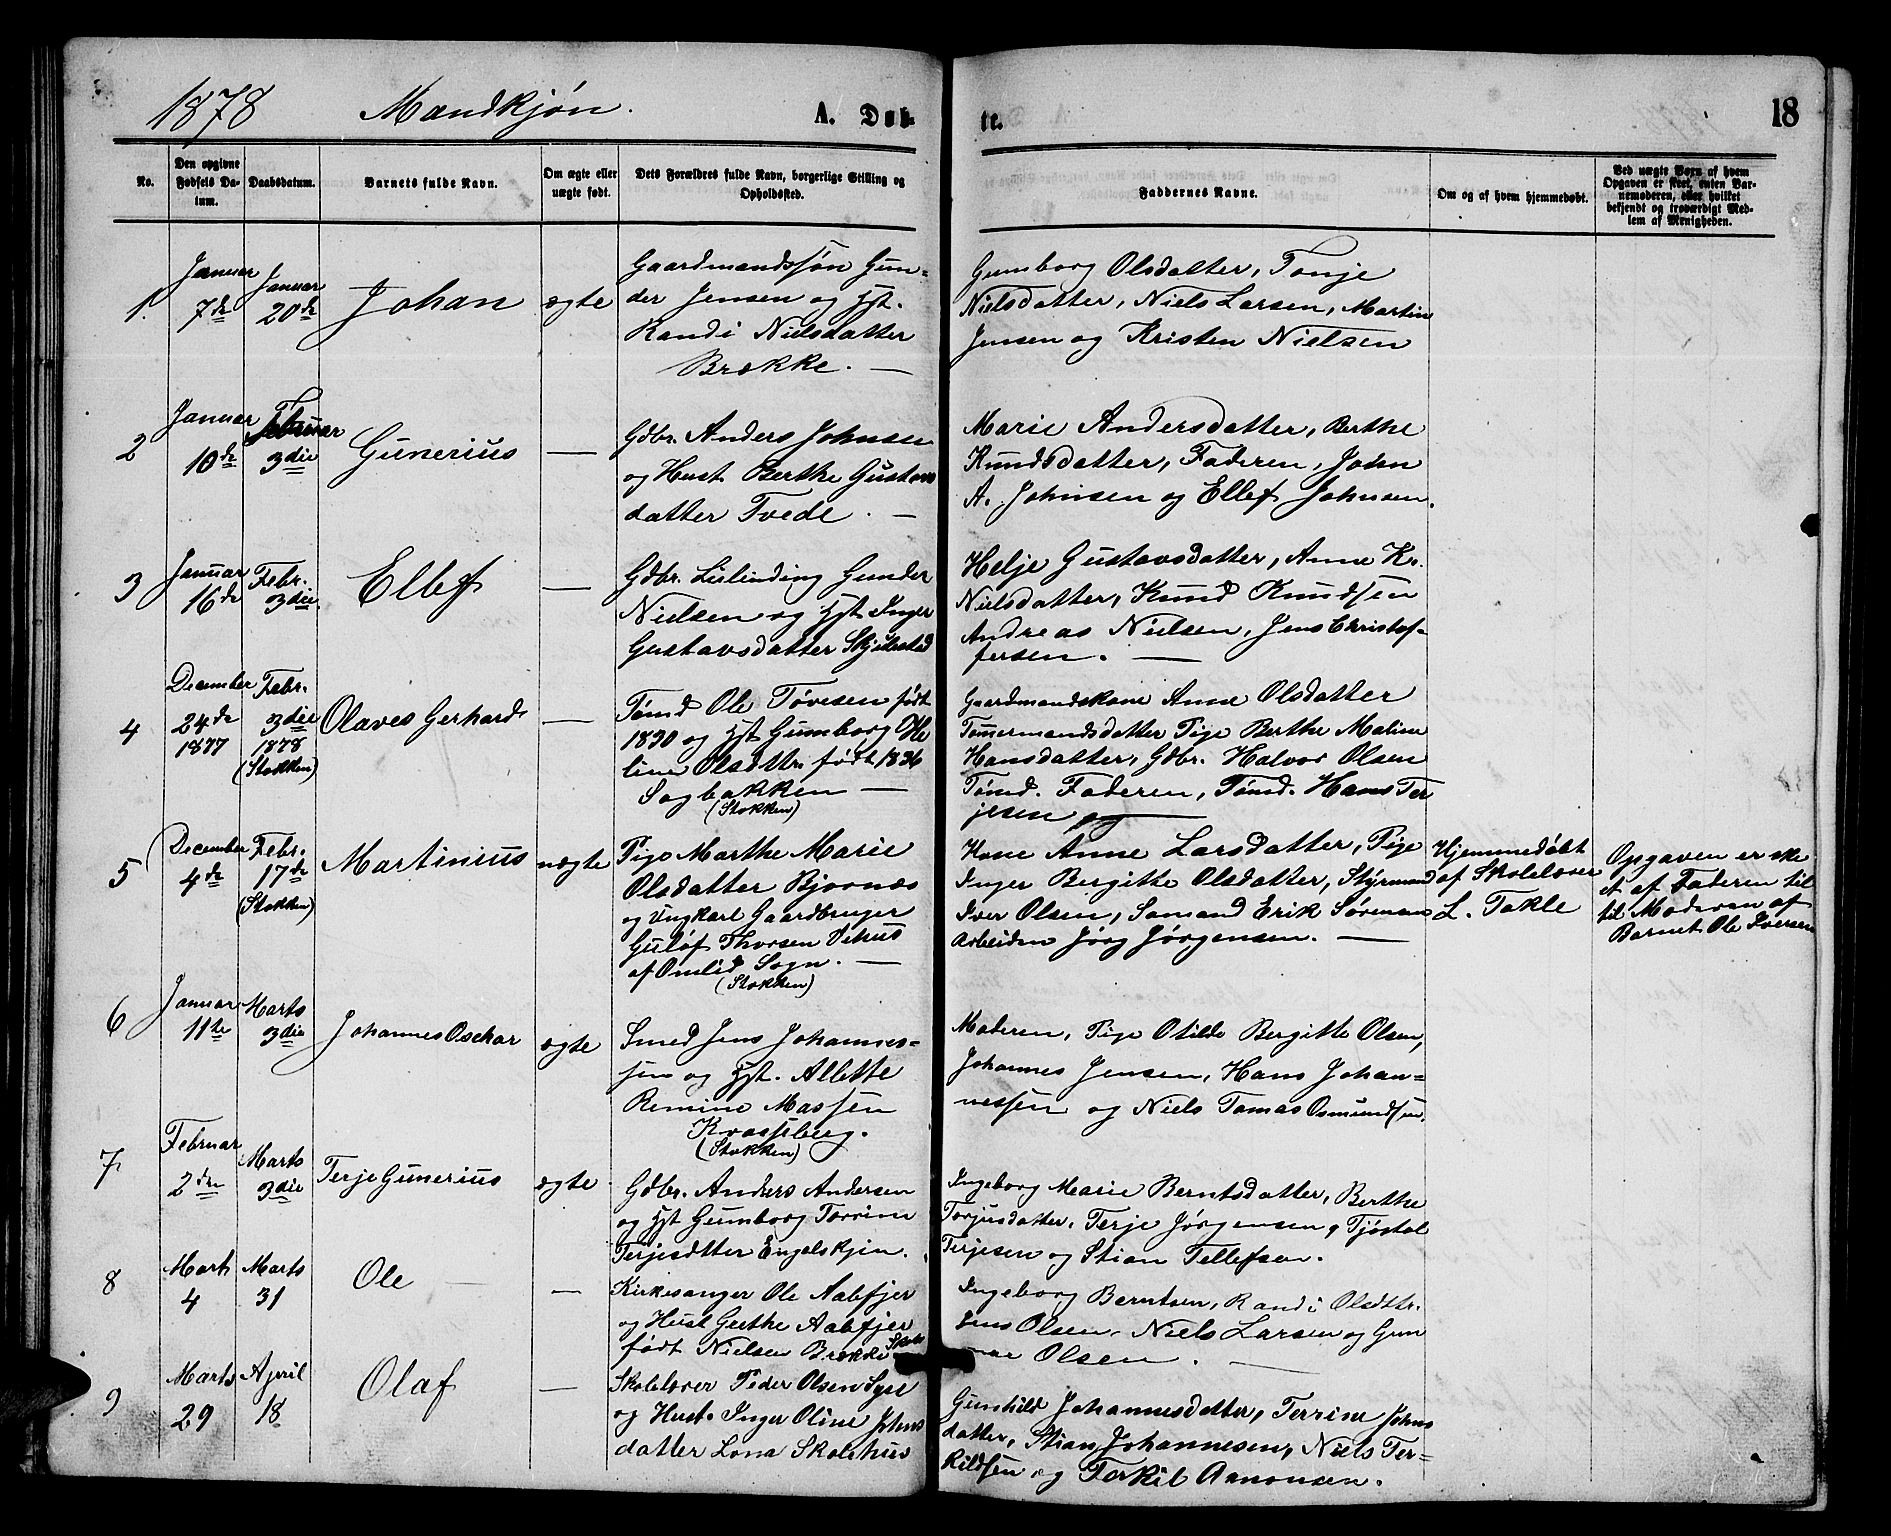 1878 Mandkjøn. A. Døbte. 18
No.
Den opgivne Fødsels Datum.
Daabsdatum.
Barnets fulde Navn.
Om ægte eller uægte født.
Dets Forældres fulde Navn, borgerlige Stilling og Opholdssted.
Faddernes Navne.
Om og af hvem hjemmedøbt.
Ved uægte Børn af hvem Opgaven er skeet, enten Barnemoderen, eller hvilket bekjendt og troværdigt Medlem af Menigheden.
1. Januar 7de Januar 20de Johan ægte
Gaardmandssøn Gun-
der Jensen og Hst.
Randi Nielsdatter
Brække. —
Gunborg Olsdatter, Tonje
Nielsdatter, Niels Larsen, Martin
Jensen og Kristen Nielsen
2 Januar 10de Februar 3die Gunerius —
Gdbr. Anders Johnsen
og Hust. Berthe Gustavs
datter Tvede. —
Marie Andersdatter, Berthe
Knudsdatter, Faderen, John
A. Johnsen og Ellef Johnsen.
3 Januar 16de Febr. 3die Ellef —
Gdbr. Gunder
Nielsen og Hst Inger
Gustavsdatter
Helje Gustavsdatter, Anne K.
Nielsdatter, Knud Knudsen
Andreas Nielsen, Jens Christof-
fersen. —
4 December 24de 1877 Febr. 3die 1878 (Stokken) Olaves Gerhard —
Tømd Ole Tovesen født
1830 og Hst Gumborg He
line Olsdttr. født 1836
Sagbakken —
(Stokken)
Gaardmandskone Anne Olsdatter
Tømermandsdatter Pige Berthe Maline
Hansdatter, Gdbr. Halvor Olsen
Tømd. Faderen, Tømd. Hans Ter
jesen
5 December 4de Febr. 17de (Stokken) Martinius uægte
Pige Marthe Marie
Olsdatter Bjornæs
og Ungkarl Gaardbruger
Gulof Thorsen Vehus
af Omlid Sogn. —
(Stokken)
Kone Anne Larsdatter, Pige
Inger Bergitte Olsdatter, Styrmand
Iver Olsen, Sømand Erik Sørensen
Arbeiden Jørg Jørgensen. —
Hjemmedøbt
af Skolelærer
L. Takle
Opgaven er ske
et af Faderen til
til Moderen af
Barnet Ole Iversen
6 Januar 11te Marts 3die Johannes Osckar ægte
Smed Jens Johannes-
sen og Hst. Allette
Remine Massen
Krasseberg.
(Stokken)
Moderen, Pige Otilde Bergitte Olsen,
Johannes Jensen, Hans Johan-
nessen og Niels Tomas Osmundsen.
7 Februar 2den Marts 3die Terje Gunerius ægte
Gdbr. Anders Andersen
og Hst Gumborg Torrine
Terjesdtter Engelskjen.
Ingeborg Marie Berntsdatter, Berthe
Torjusdatter, Terje Jørgensen, Tjøstol
Terjesen og Stian Tellefsen.
8 Mart 4 Marts 31 Ole — —
Kirkesanger Ole Aabfjer
og Hust Gerthe Aabfjer
født Nielsen Brække
Ingeborg Berntsen, Randi Olsdttr.
Jens Olsen, Niels Larsen og Gun
nar Olsen. —
9 Marts 29 April 18 Olaf —
Skolelærer Peder Olsen Lyse
og Hust. Inger Oline Johns
datter Lona Skolehus
Gunhild Johannesdatter, Terrine Johns
datter, Stian Johannesen, Niels Ter-
kildsen og Terkil Aanonsen.